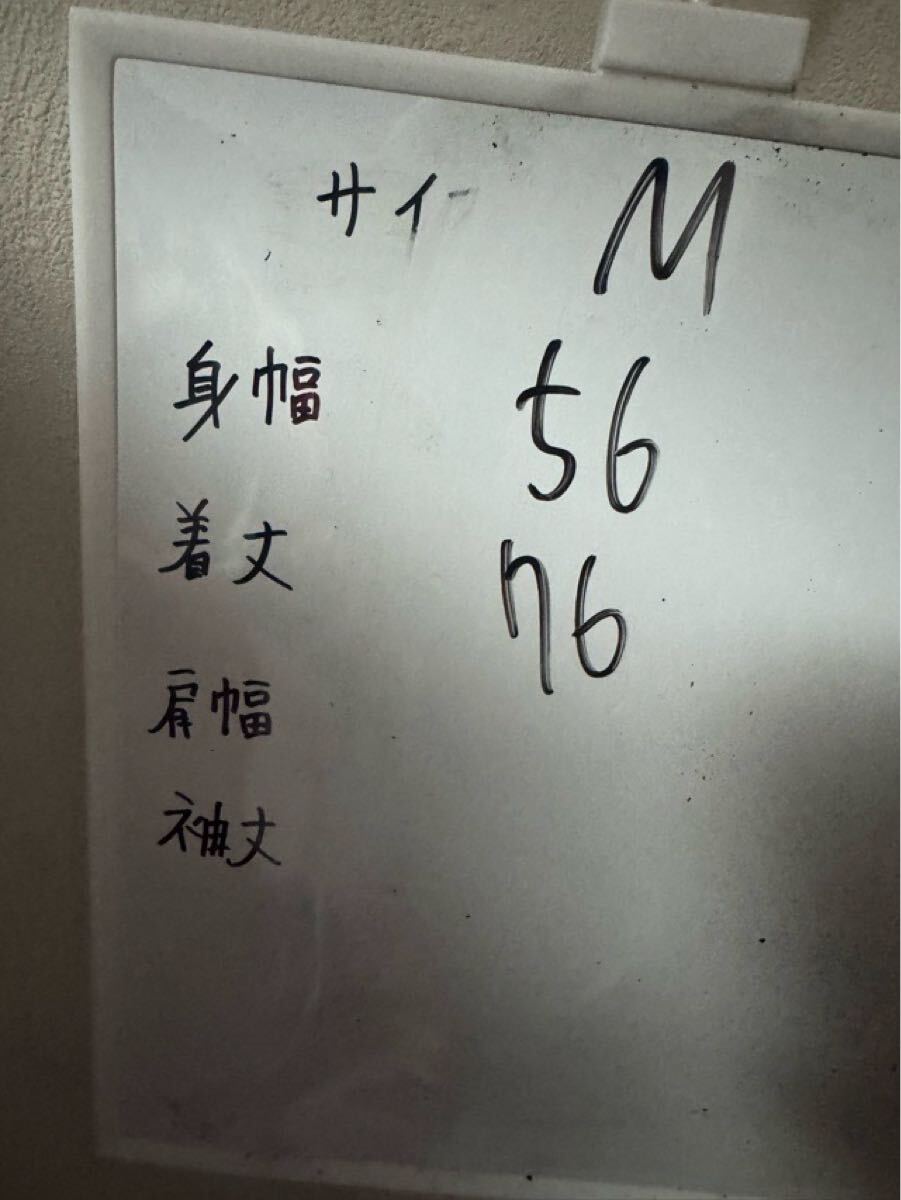 サイ M
身幅 56
着丈 76
肩幅
袖丈